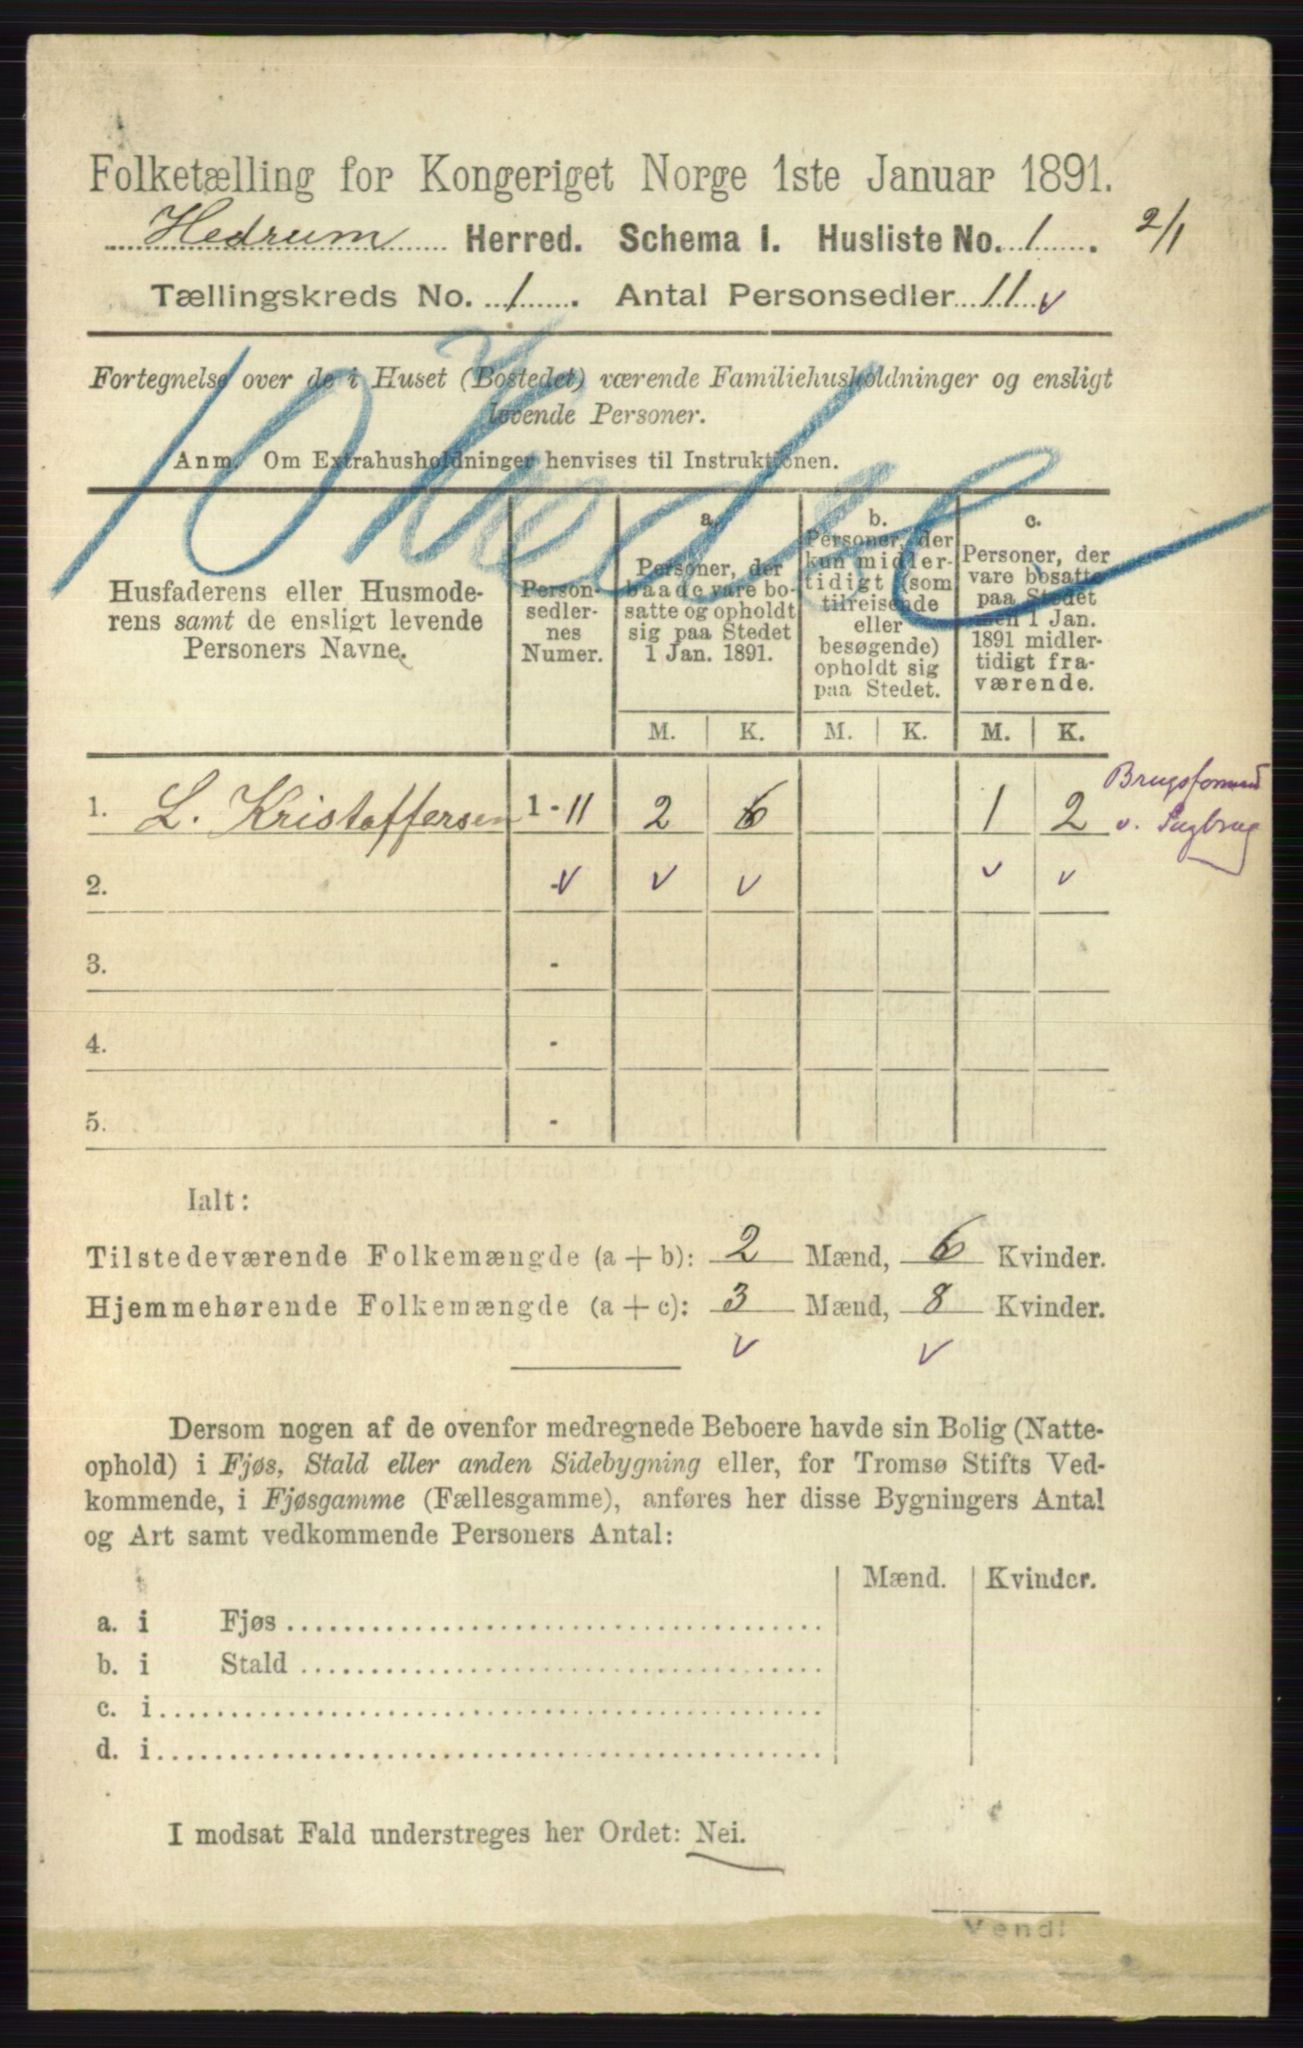 Folketælling for Kongeriget Norge 1ste Januar 1891.
Hedrum Herred. Schema I. Husliste No. 1. 2/1
Tællingskreds No. 1. Antal Personsedler 11 v
Fortegnelse over de i Huset (Bostedet) værende Familiehusholdninger og ensligt
levende Personer.
Anm. Om Extrahusholdninger henvises til Instruktionen.
10
Husfaderens eller Husmode-
rens samt de ensligt levende
Personers Navne.
Person-
sedler-
nes
Numer.
a.
Personer, der
baade vare bo-
satte og opholdt
sig paa Stedet
1 Jan. 1891.
b.
Personer, der
kun midler-
tidigt (som
tilreisende
eller
besøgende)
opholdt sig
paa Stedet.
c.
Personer, der
vare bosatte
paa Stedet
men 1 Jan.
1891 midler-
tidigt fra-
værende.
M. K. M. K. M. K.
1. L. Kristoffersen 1 - 11 2 6 1 2
Brugsformand
v. Sagbrug
2. - v v v v v
3. -
4. -
5. -
Ialt:
Tilstedeværende Folkemængde (a + b): 2 Mænd, 6 Kvinder.
Hjemmehørende Folkemængde (a + c): 3 Mænd, 8 Kvinder.
v v
Dersom nogen af de ovenfor medregnede Beboere havde sin Bolig (Natte-
ophold) i Fjøs, Stald eller anden Sidebygning eller, for Tromsø Stifts Ved-
kommende, i Fjøsgamme (Fællesgamme), anføres her disse Bygningers Antal
og Art samt vedkommende Personers Antal:
Mænd. Kvinder.
a. i Fjøs
b. i Stald
c. i
d. i
I modsat Fald understreges her Ordet: Nei.
Vend!